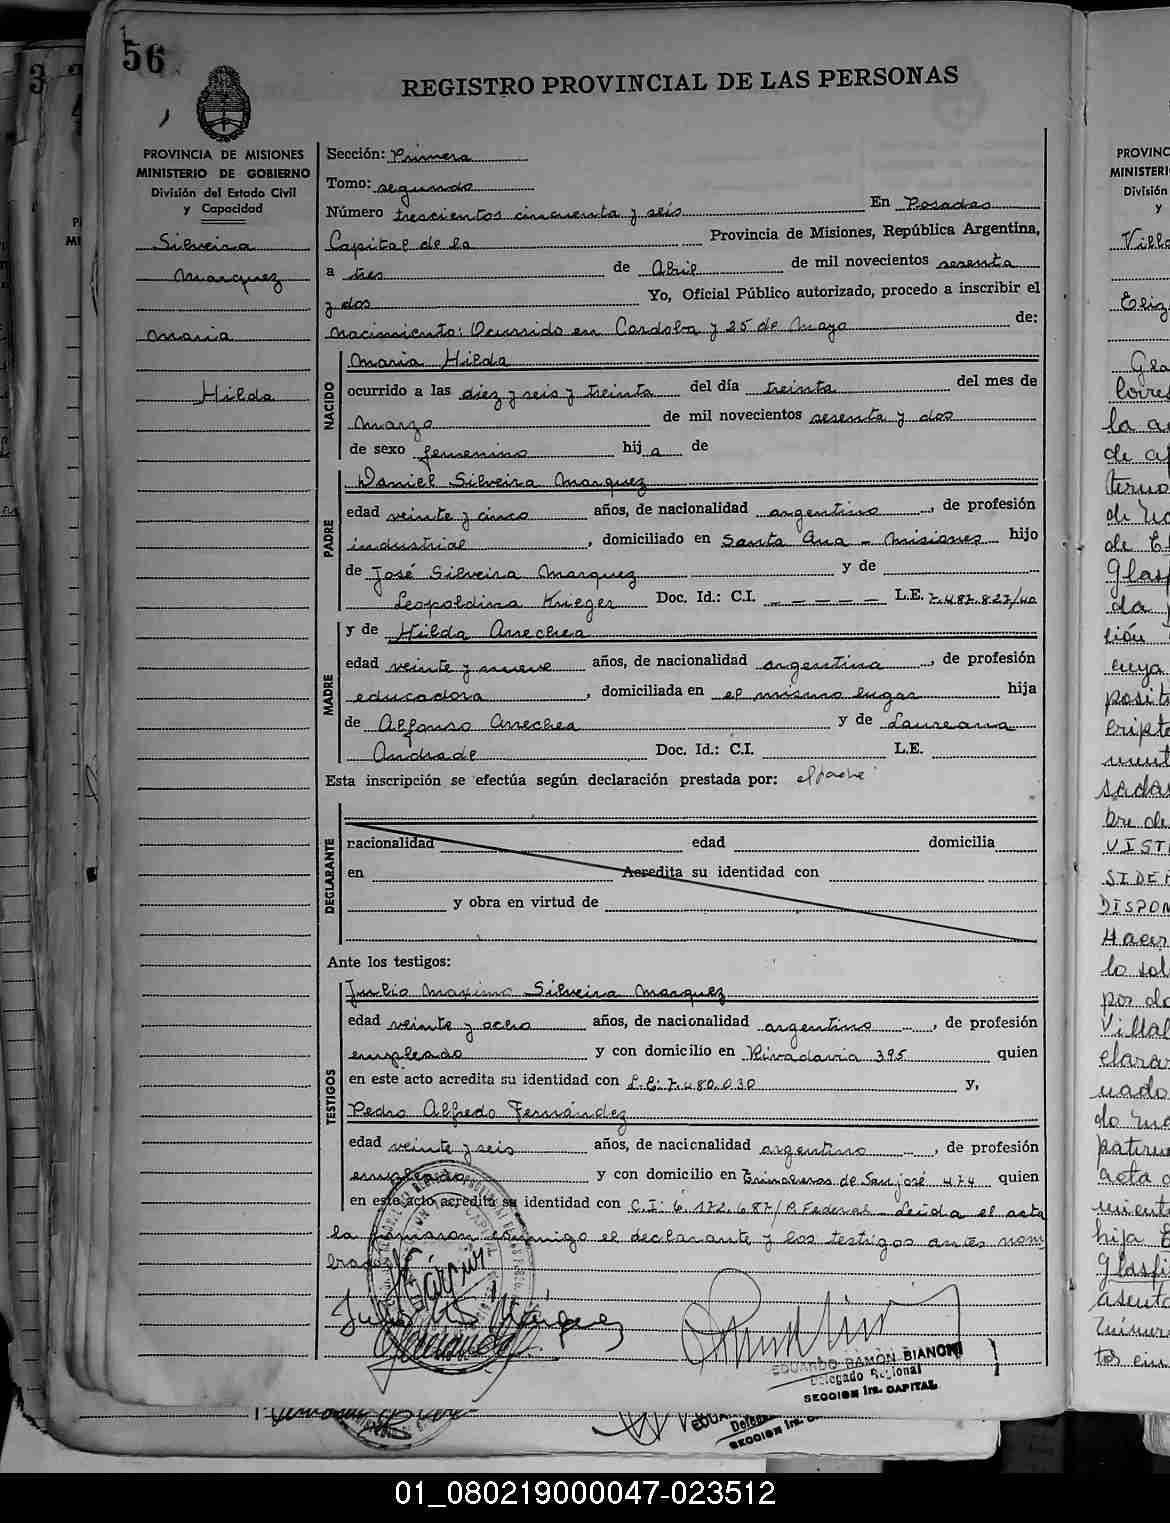 56
REGISTRO PROVINCIAL DE LAS PERSONAS
PROVINCIA DE MISIONES
MINISTERIO DE GOBIERNO
División del Estado Civil
y Capacidad
Silveira
Marquez
Maria
Hilda
Sección: Primera
Tomo: segundo
Número trescientos cincuenta y seis En Posadas
Capital de la Provincia de Misiones, República Argentina,
a tres de Abril de mil novecientos sesenta
y dos Yo, Oficial Público autorizado, procedo a inscribir el
nacimiento: Ocurrido en Cordoba y 25 de Mayo de:
NACIDO
Maria Hilda
ocurrido a las diez y seis y treinta del día treinta del mes de
Marzo de mil novecientos sesenta y dos
de sexo femenino hij a de
PADRE
Daniel Silveira Marquez
edad veinte y cinco años, de nacionalidad argentino, de profesión
industrial, domiciliado en Santa Ana - Misiones hijo
de José Silveira Marquez y de
Leopoldina Krieger Doc. Id.: C.I. _ _ _ _ _ L.E. 7.487.827/40
MADRE
y de Hilda Arrechea
edad veinte y nueve años, de nacionalidad argentina, de profesión
educadora, domiciliada en el mismo lugar hija
de Alfonso Arrechea y de Laureana
Andrade Doc. Id.: C.I. L.E.
Esta inscripción se efectúa según declaración prestada por: el padre
DECLARANTE
nacionalidad edad domicilia
en Acredita su identidad con
y obra en virtud de
Ante los testigos:
TESTIGOS
Julio Maximo Silveira Marquez
edad veinte y ocho años, de nacionalidad argentino, de profesión
empleado y con domicilio en Rivadavia 395 quien
en este acto acredita su identidad con L.E: 7.480.030 y,
Pedro Alfredo Fernández
edad veinte y seis años, de nacionalidad argentino, de profesión
empleado y con domicilio en Trincheras de San José 474 quien
en este acto acredita su identidad con C.I: 6.172.687/P. Federal - Leida el acta
la firmaron conmigo el declarante y los testigos antes nom
brados
EDUARDO RAMÓN BIANCHI
Delegado Regional
SECCION 1ra. CAPITAL
PROVINC
MINISTERI
División
y
Villa
Eliz
la
de
de
de
Glasf
da
lión
cuya
posit
sadas
bre de
VIST
DISPON
Hacer
lo sol
por do
Villal
clara
patern
acta
hija
Glasfi
asento
01_080219000047-023512